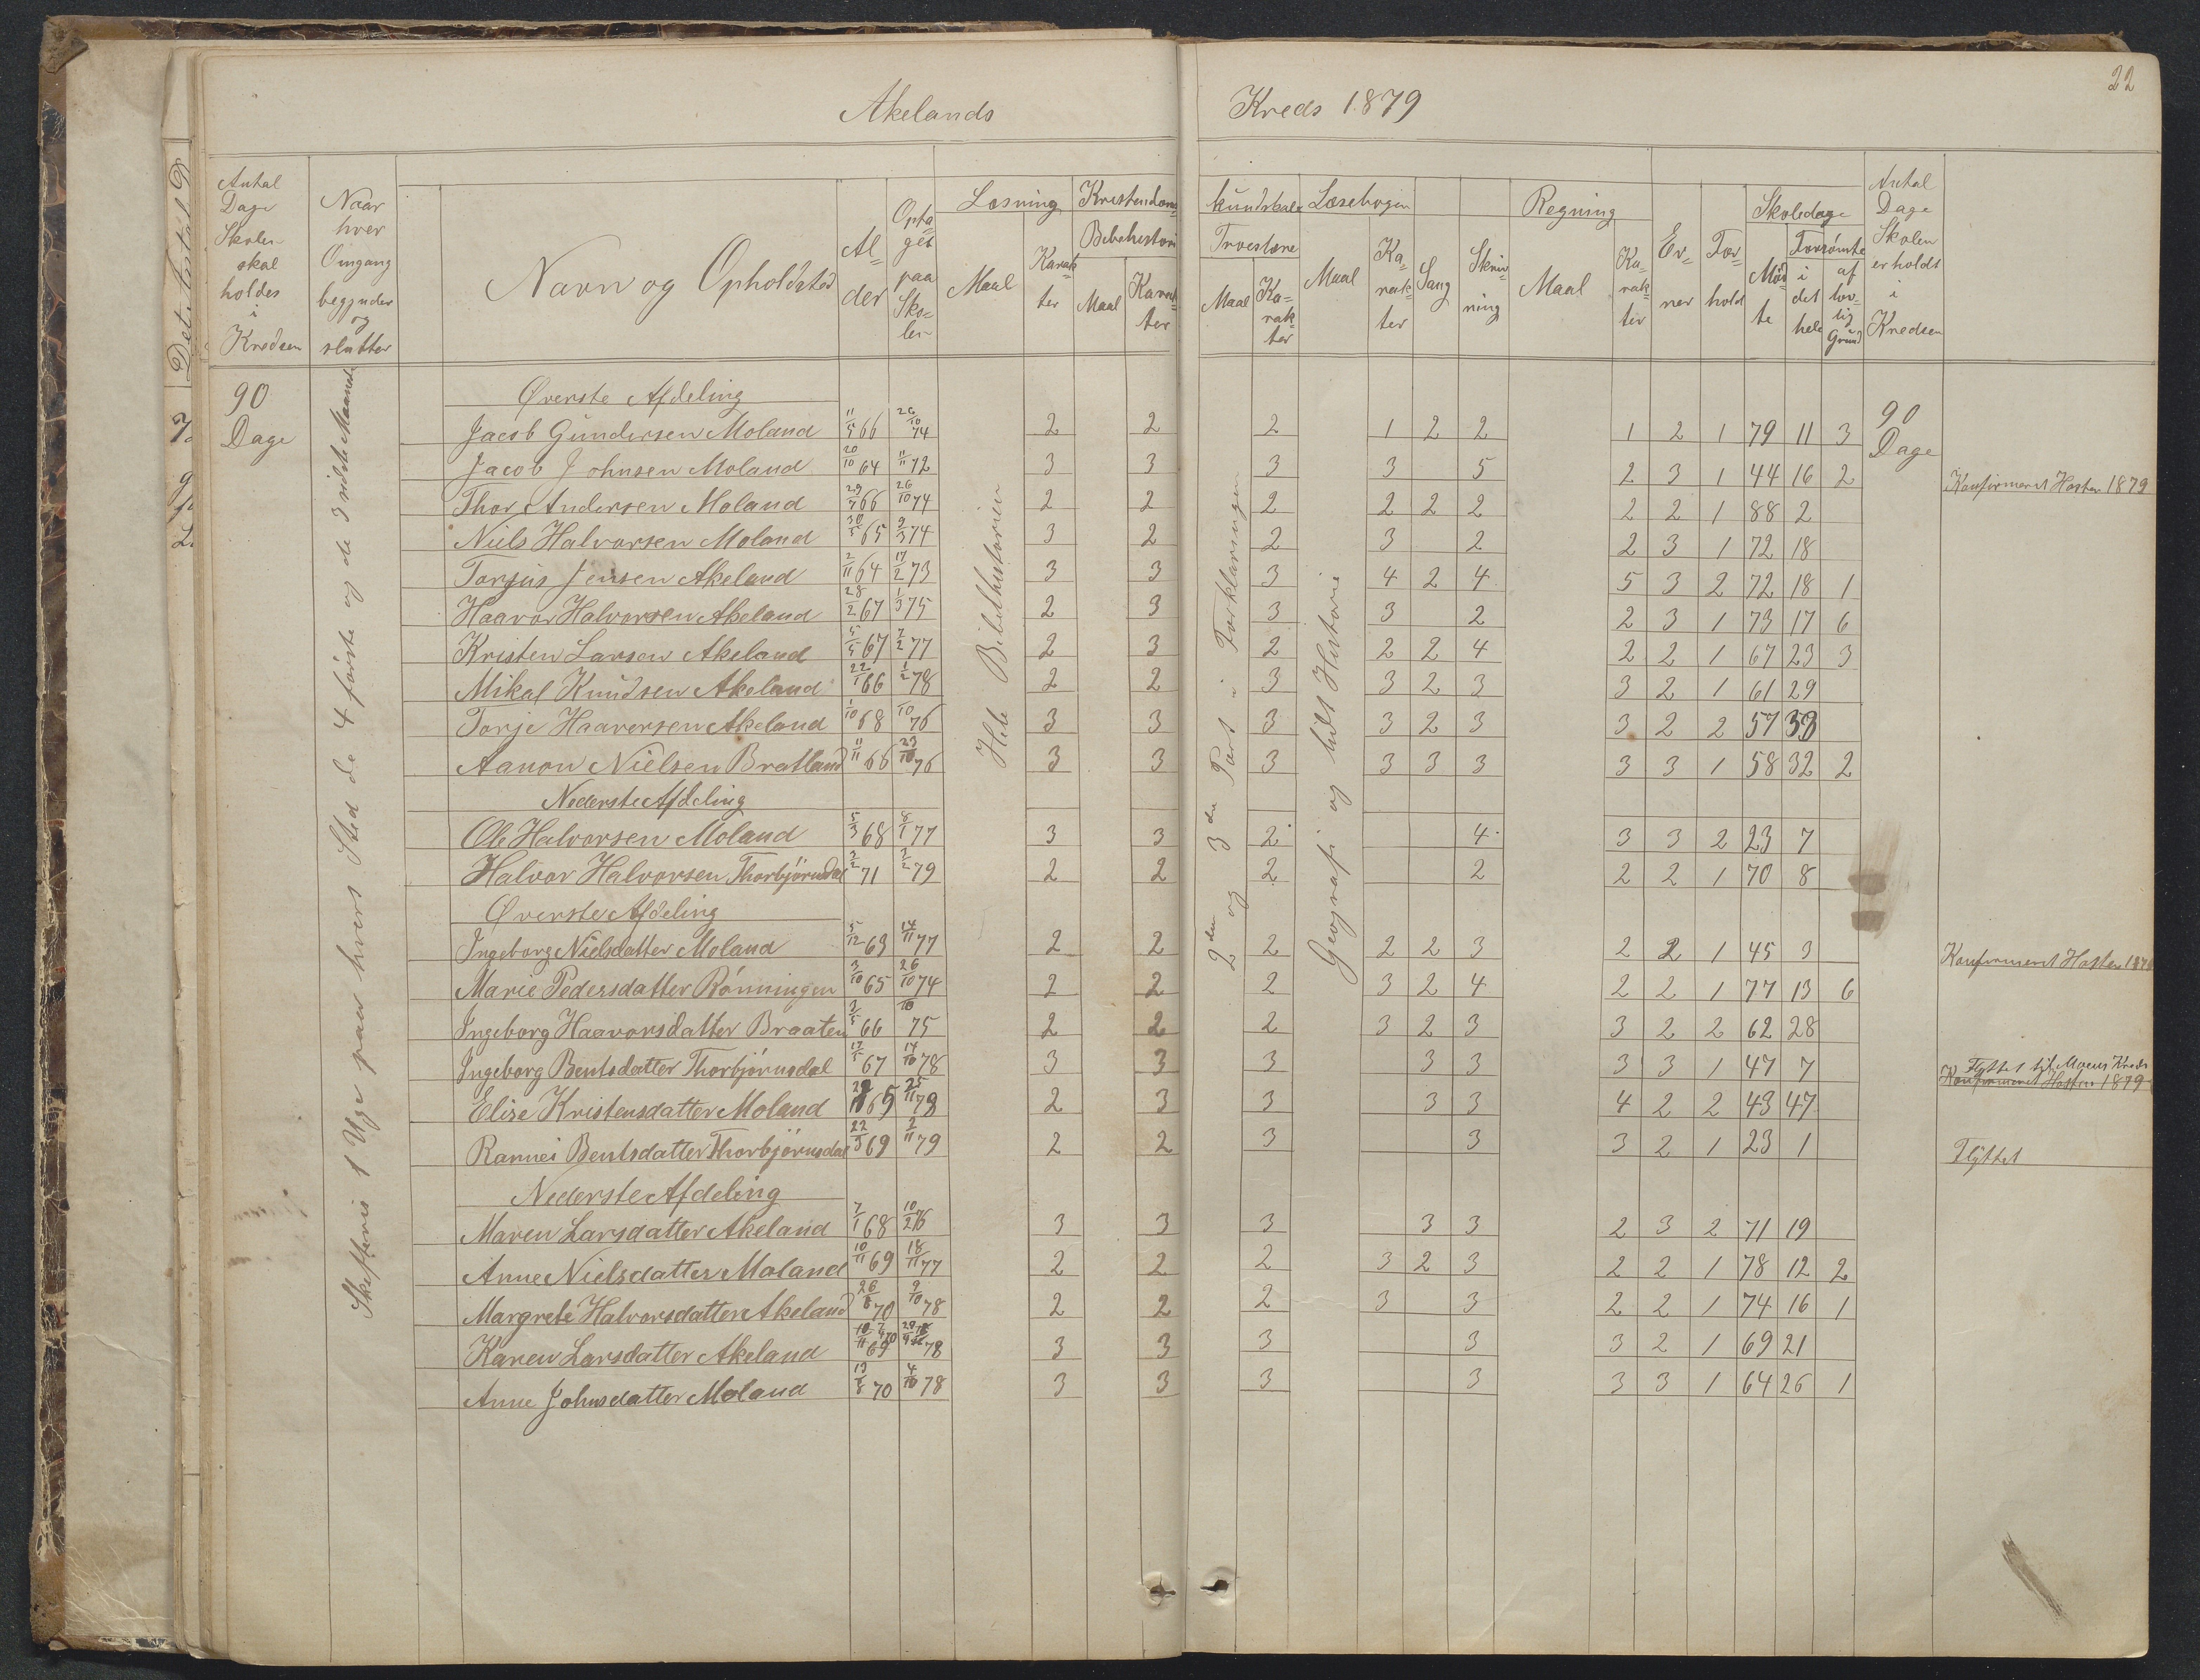 22
Akelands Kreds 1879
Antal Dage Skolen skal holdes i Kredsen
Naar hver Omgang begynder og slutter
Navn og Opholdsted
Al-der
Opta-get paa Sko-len
Læsning
Maal
Karak-ter
Kristendoms-kundskab
Bibelhistori
Maal
Karak-ter
Troeslære
Maal
Ka-rak-ter
Læsebogen
Maal
Ka-rak-ter
Sang
Skriv-ning
Regning
Maal
Ka-rak-ter
Ev-ner
For-hold
Skoledage
Mød-te
Forsømte
i det hele
af lov-lig Grund
Antal Dage Skolen er holdt i Kredsen
90 Dage
Skiftevis 1 Uge paa hvert Sted de 4 første og de 3 sidste Maaned
Hele Bibelhistorien
2den og 3die Part i Forklaringen
Geografi og lidt Historie
90 Dage
Øverste Afdeling
Jacob Gundersen Moland 11/5 66 26/10 74 2 2 2 1 2 2 1 2 1 79 11 3
Jacob Johnsen Moland 20/10 64 11/11 72 3 3 3 3 5 2 3 1 44 16 2 Konfirmeret Høsten 1879
Thor Andersen Moland 29/5 66 26/10 74 2 2 2 2 2 2 2 2 1 88 2
Niels Halvorsen Moland 30/5 65 9/3 74 3 2 2 3 2 2 3 1 72 18
Torjus Jensen Akeland 2/11 64 17/2 73 3 3 3 4 2 4 5 3 2 72 18 1
Haavor Halvorsen Akeland 28/2 67 1/3 75 2 3 3 3 2 2 3 1 73 17 6
Kristen Larsen Akeland 5/5 67 7/2 77 2 3 2 2 2 4 2 2 1 67 23 3
Mikal Knudsen Akeland 22/1 66 1/2 78 2 2 3 3 2 3 3 2 1 61 29
Torje Haaversen Akeland 1/10 68 10 76 3 3 3 3 2 3 3 2 2 57 33
Aanon Nielsen Bratland 11/11 66 23/10 76 3 3 3 3 3 3 3 3 1 58 32 2
Nederste Afdeling
Ole Halvorsen Moland 5/3 68 8/1 77 3 3 2 4 3 3 2 23 7
Halvor Halvorsen Thorbjørnsdal 3/2 71 3/2 79 2 2 2 2 2 2 1 70 8
Øverste Afdeling
Ingeborg Nielsdatter Moland 5/12 63 14/11 77 2 2 2 2 2 3 2 2 1 45 3 Konfirmeret Høsten 1879
Marie Pedersdatter Rønningen 3/10 65 26/10 74 2 2 2 3 2 4 2 2 1 77 13 6
Ingeborg Haavorsdatter Braaten 3/5 66 10 75 2 2 2 3 2 3 3 2 2 62 28
Ingeborg Bentsdatter Thorbjørnsdal 17/5 67 14/10 78 3 3 3 3 3 3 3 1 47 7 Flyttet til Moens Kreds
Elise Kristensdatter Moland 65 25/11 78 2 3 3 3 3 4 2 2 43 47 Konfirmeret Høsten 1879
Rannei Bentsdatter Thorbjørnsdal 22/3 69 2/11 79 2 2 3 3 3 2 1 23 1 Flyttet
Nederste Afdeling
Maren Larsdatter Akeland 7/1 68 10/2 76 3 3 3 3 3 2 3 2 71 19
Anne Nielsdatter Moland 10/11 69 18/11 77 2 2 2 3 2 3 2 2 1 78 12 2
Margrete Halvorsdatter Akeland 26/8 70 9/10 78 2 2 2 3 3 2 2 1 74 16 1
Karen Larsdatter Akeland 69 78 3 3 3 3 3 2 1 69 21
Anne Johnsdatter Moland 13/8 70 4/10 78 3 3 3 3 3 3 1 64 26 1